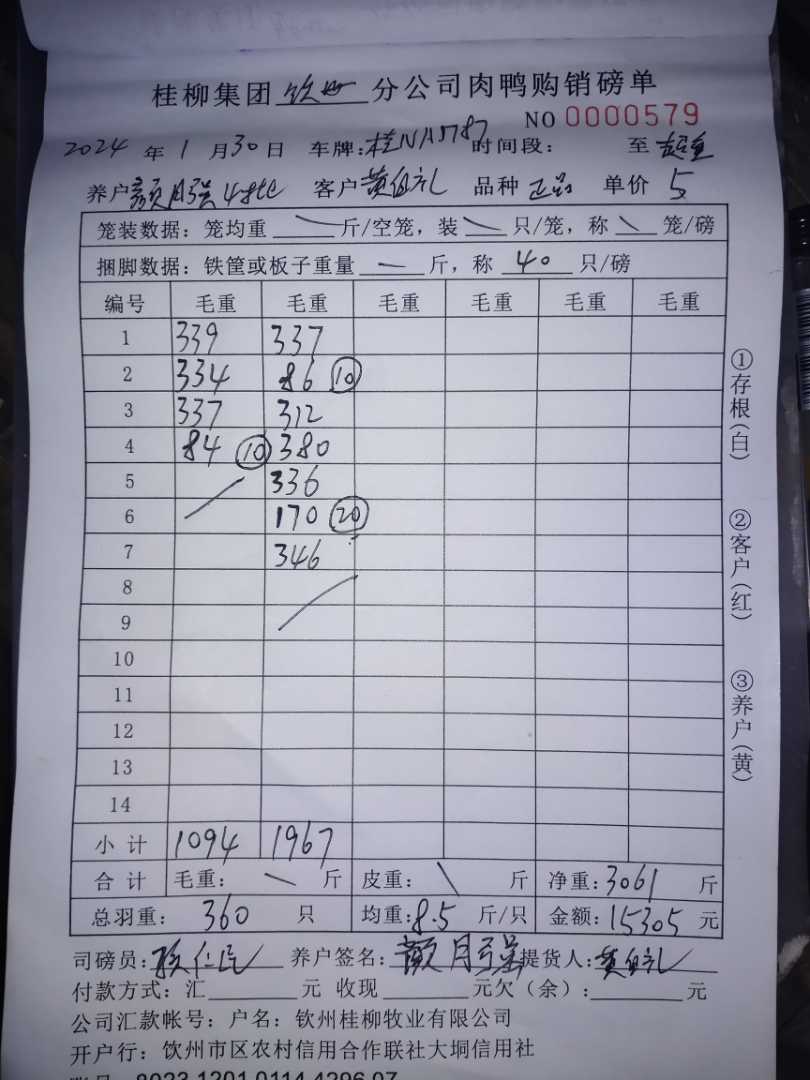 桂柳集团钦州分公司肉鸭购销磅单
NO 0000579
2024年1月30日 车牌:桂NA5787 时间段: 至
养户颜月强4批 客户黄伯礼 品种正品 单价5
笼装数据: 笼均重 斤/空笼, 装 只/笼, 称 笼/磅
捆脚数据: 铁筐或板子重量 一 斤, 称 40 只/磅
编号 毛重 毛重 毛重 毛重 毛重 毛重
1 339 337
2 334 86 ⑩
3 337 312
4 84 ⑩ 380
5 336
6 170 ⑳
7 346
8
9
10
11
12
13
14
小计 1094 1967
合计 毛重: 斤 皮重: 斤 净重:3061斤
总羽重: 360 只 均重:8.5斤/只 金额:15305元
司磅员: 仁民 养户签名:颜月强 提货人:黄伯礼
付款方式: 汇 元 收现 元欠(余): 元
公司汇款帐号: 户名: 钦州桂柳牧业有限公司
开户行: 饮州市区农村信用合作联社大垌信用社
账号 8023 1201 0114 4296 07
①存根(白)
②客户(红)
③养户(黄)